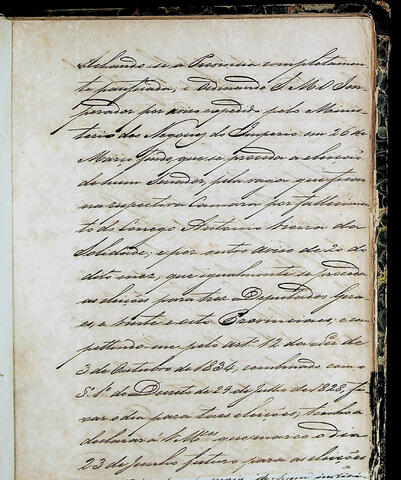 Achando-se a Provincia completamen-
te pacificada, e Ordenando S. M. O Im-
perador por aviso expedido pelo Minis-
terio dos Negocios do Imperio em 26 de
Março findo, que se proceda a eleição
de hum Senador, pela vaga que ficou
na respectiva Camara por fallecimen-
to do Conego Antonio Vieira da
Soledade; e por outro aviso de 20 do
dito mez, que igualmente se proceda
as eleições para tres Deputados Gera-
es, e vinte e oito Provinciaes, com-
petindo-me pelo art. 12 da Lei de
3 de Outubro de 1834, combinado com o
§. 1º do Decreto de 29 de Julho de 1828, fi-
xar o dia para taes eleições, tenho a
declarar á V. Mces. que marco o dia
23 de Junho futuro para as eleições